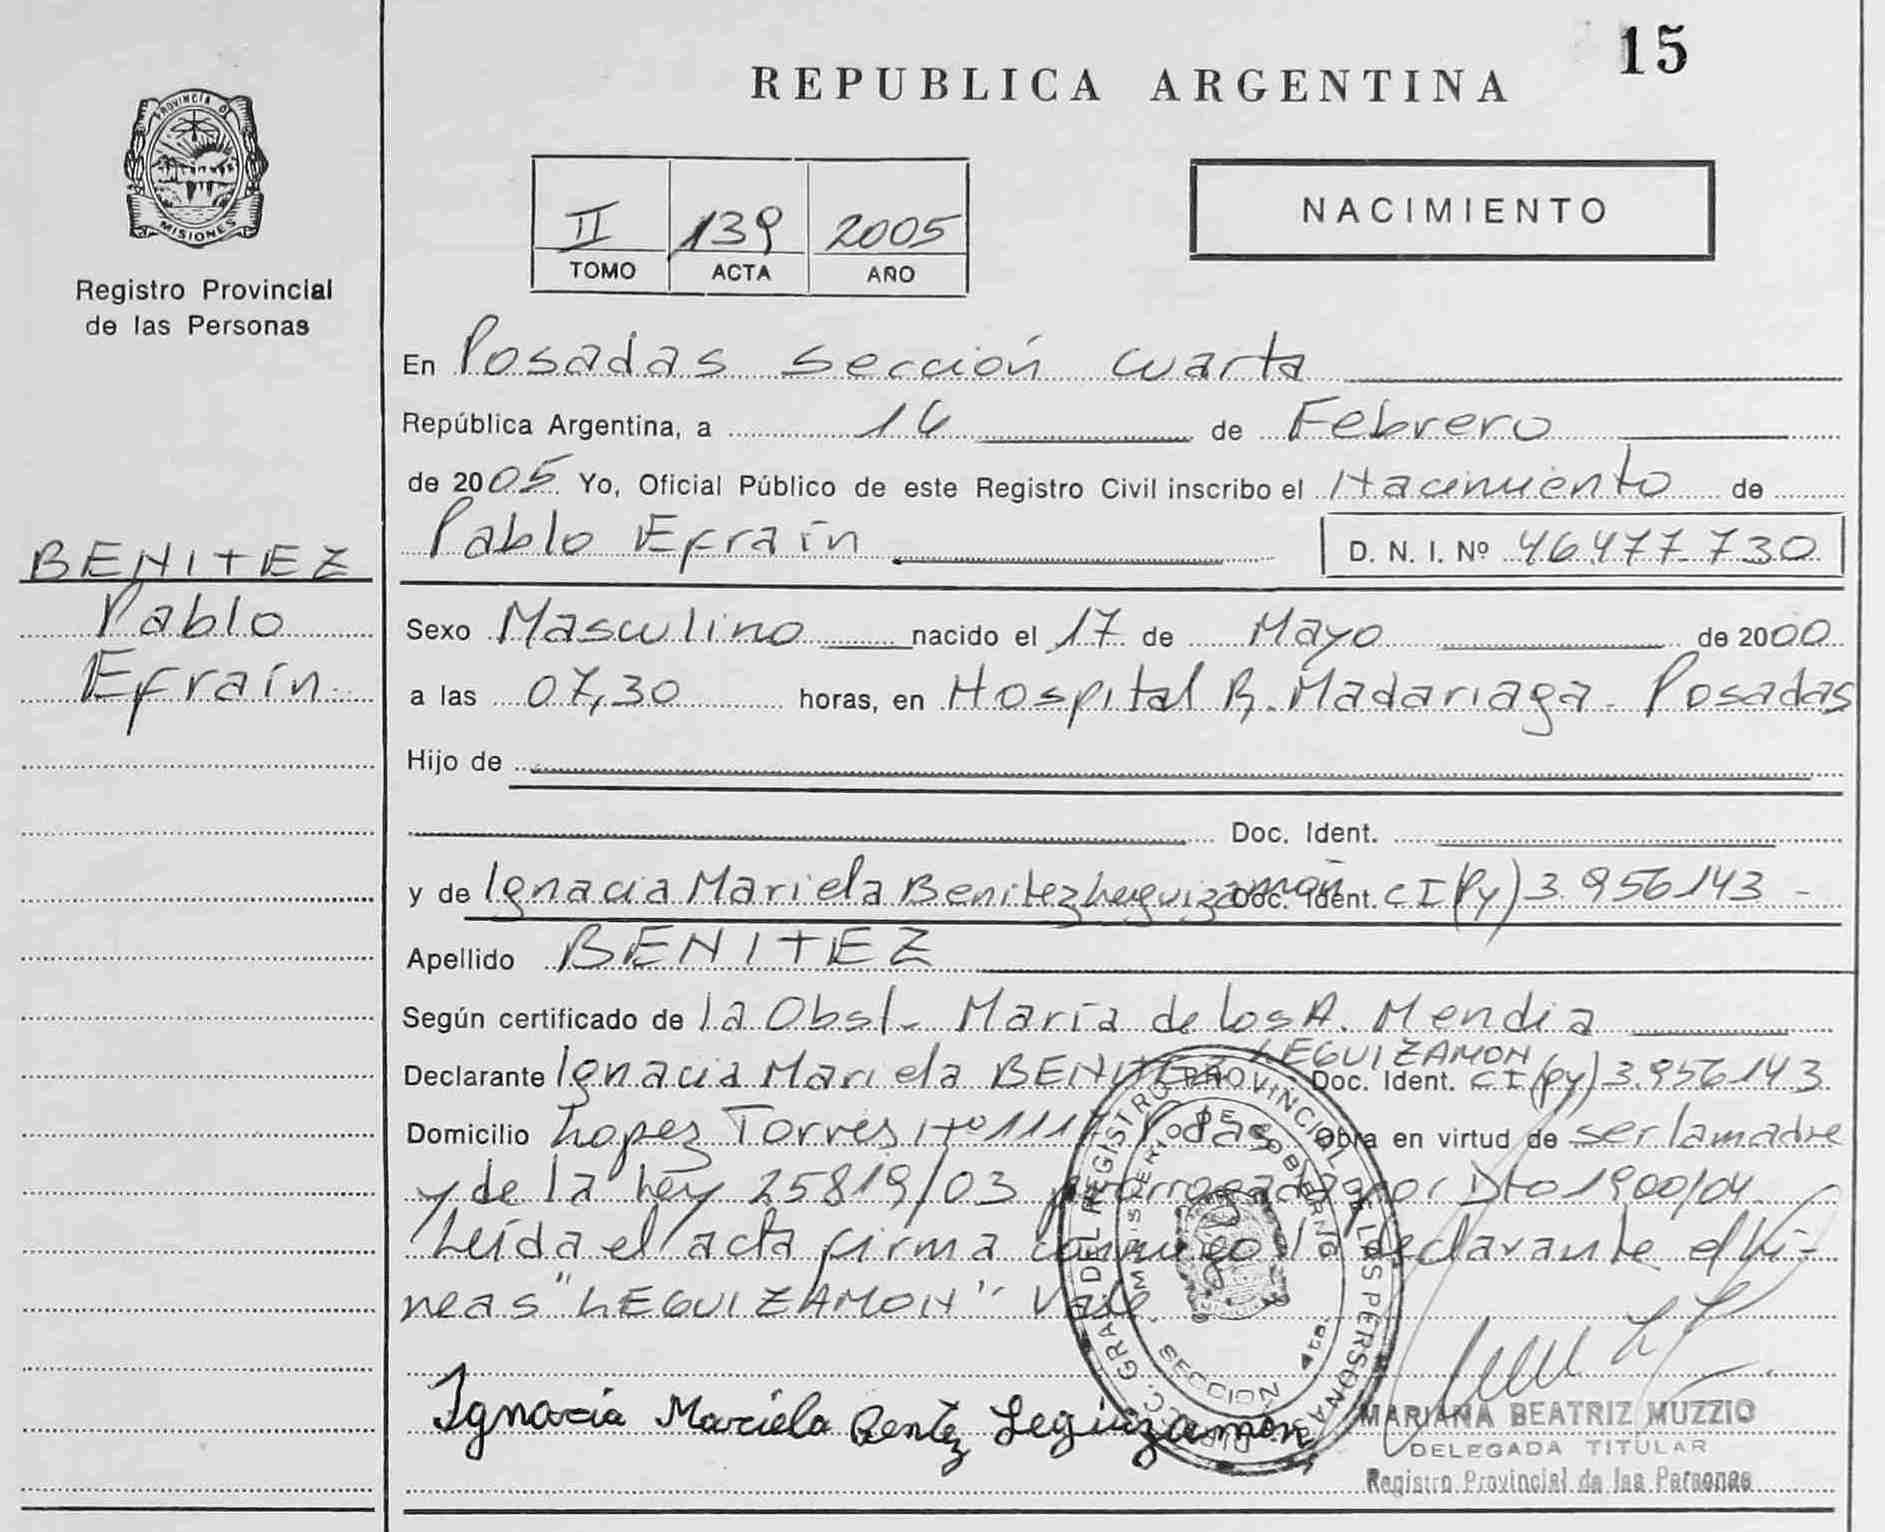 15
REPUBLICA ARGENTINA
PROVINCIA DE
MISIONES
Registro Provincial
de las Personas
II 139 2005
TOMO ACTA AÑO
NACIMIENTO
En Posadas Sección Cuarta
República Argentina, a 16 de Febrero
de 2005 Yo, Oficial Público de este Registro Civil inscribo el Nacimiento de
Pablo Efraín D. N. I. Nº 46.477.730
BENITEZ
Pablo
Efraín
Sexo Masculino nacido el 17 de Mayo de 2000
a las 07,30 horas, en Hospital R. Madariaga. Posadas
Hijo de
Doc. Ident.
y de Ignacia Mariela Benitez Leguizamón Doc. Ident. CI (Py) 3.956143 -
Apellido BENITEZ
Según certificado de la Obst. María de los A. Mendia
LEGUIZAMON
Declarante Ignacia Mariela BENITEZ Doc. Ident. CI (Py) 3.956143
Domicilio Lopez Torres Nº Pdas Obra en virtud de ser la madre
y de la Ley 25819/03 prorrogada por Dto 1900/04
Leída el acta firma conmigo la declarante e/lí-
neas "LEGUIZAMON" Vale
Ignacia Mariela Benitez Leguizamon
REGISTRO PROVINCIAL DE LAS PERSONAS
MINISTERIO DE GOBIERNO
SECCION 4ta.
MARIANA BEATRIZ MUZZIO
DELEGADA TITULAR
Registro Provincial de las Personas